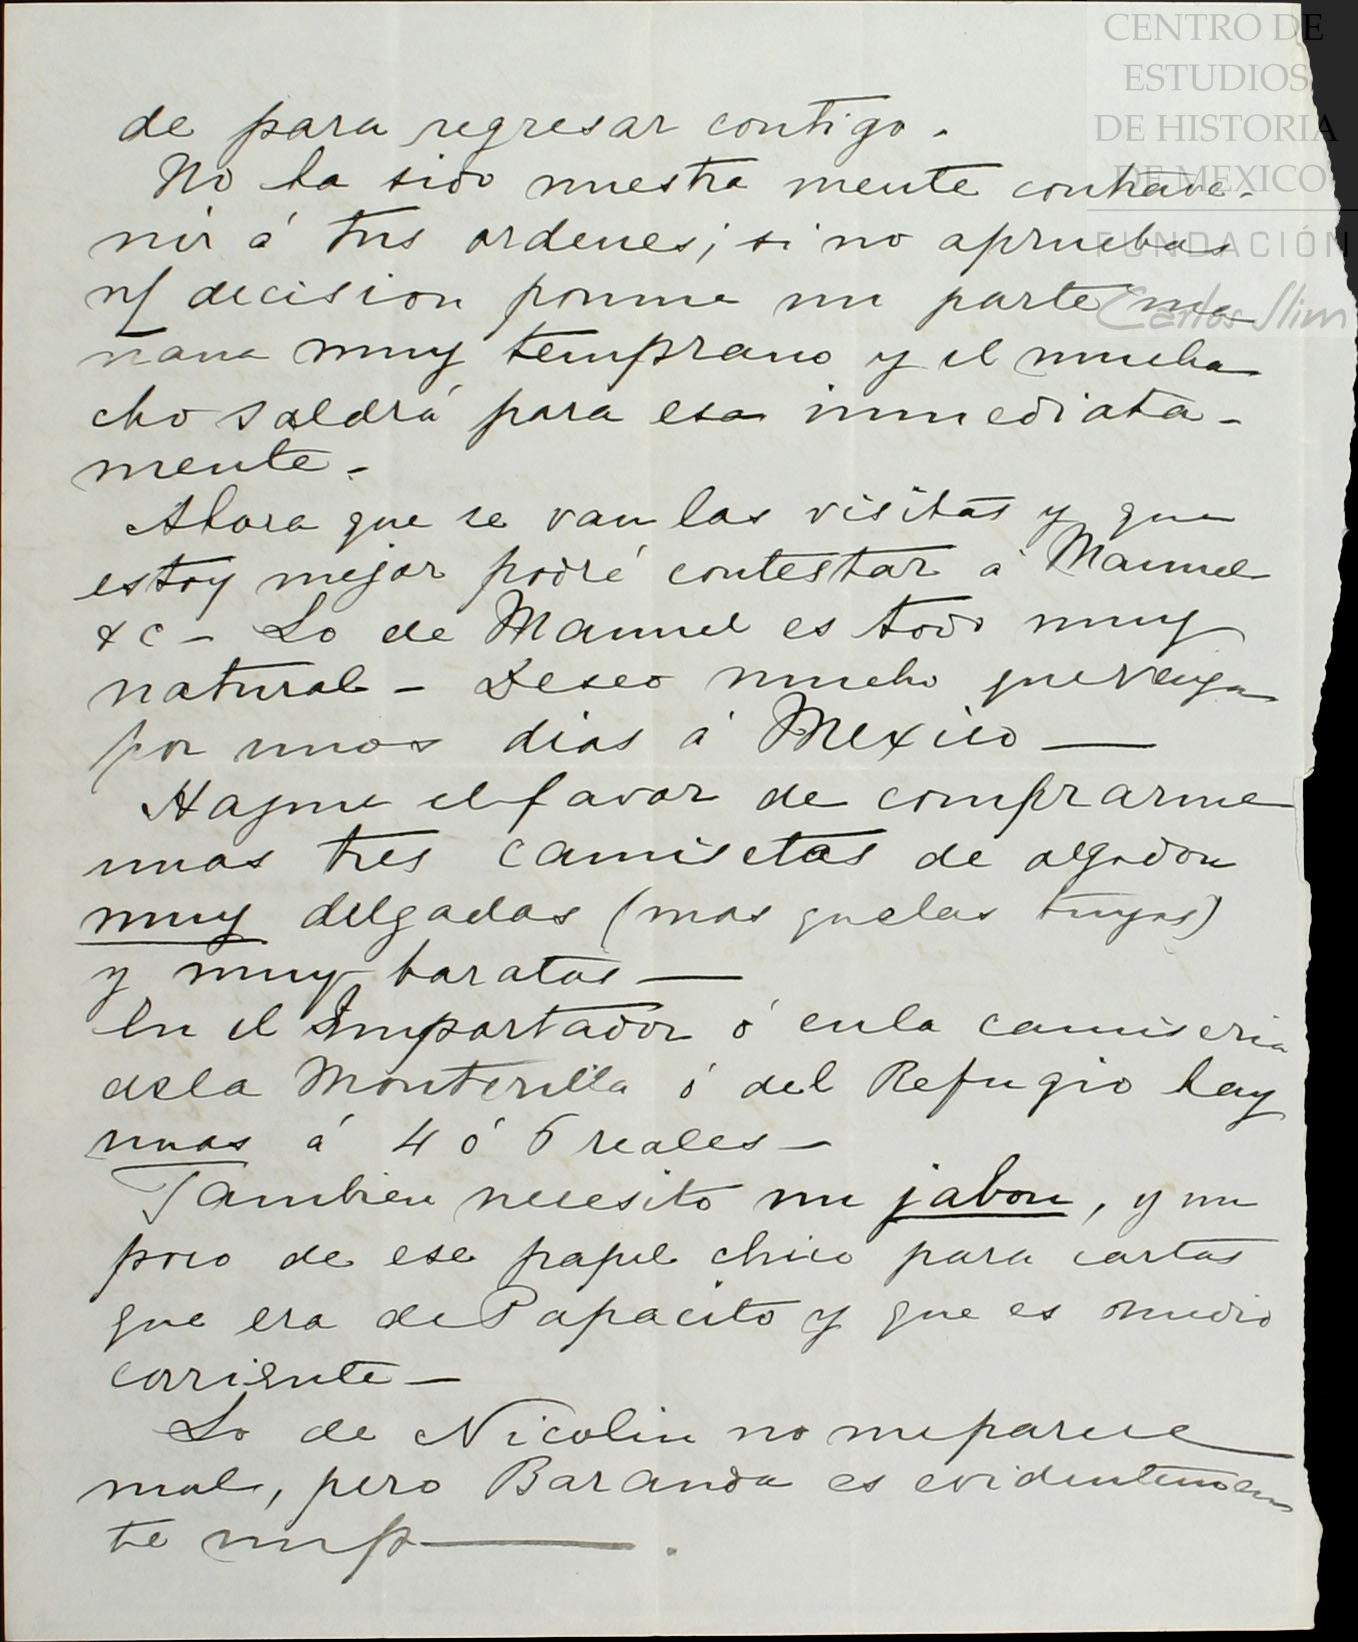 CENTRO DE
ESTUDIOS
DE HISTORIA
DE MEXICO
FUNDACIÓN
Carlos Slim
de para regresar contigo.
No ha sido nuestra mente contrave-
nir á tus ordenes; si no apruebas
n/ decision ponme un parte ma
ñana muy temprano y el mucha
cho saldrá para esa inmediata-
mente.-
Ahora que se van las visitas y que
estoy mejor podré contestar á Manuel
&c - Lo de Manuel es todo muy
natural - Deseo mucho que venga
por unos dias á Mexico —
Hazme el favor de comprarme
unas tres camisetas de algodon
muy delgadas (mas que las tuyas)
y muy baratas —
En el Importador ó en la camiseria
de la Monterilla ó del Refugio hay
unas á 4 ó 6 reales -
Tambien necesito un jabon, y un
poco de ese papel chico para cartas
que era de Papacito y que es medio
corriente -
Lo de Nicolin no me parece
mal, pero Baranda es evidentemen
te un p———.